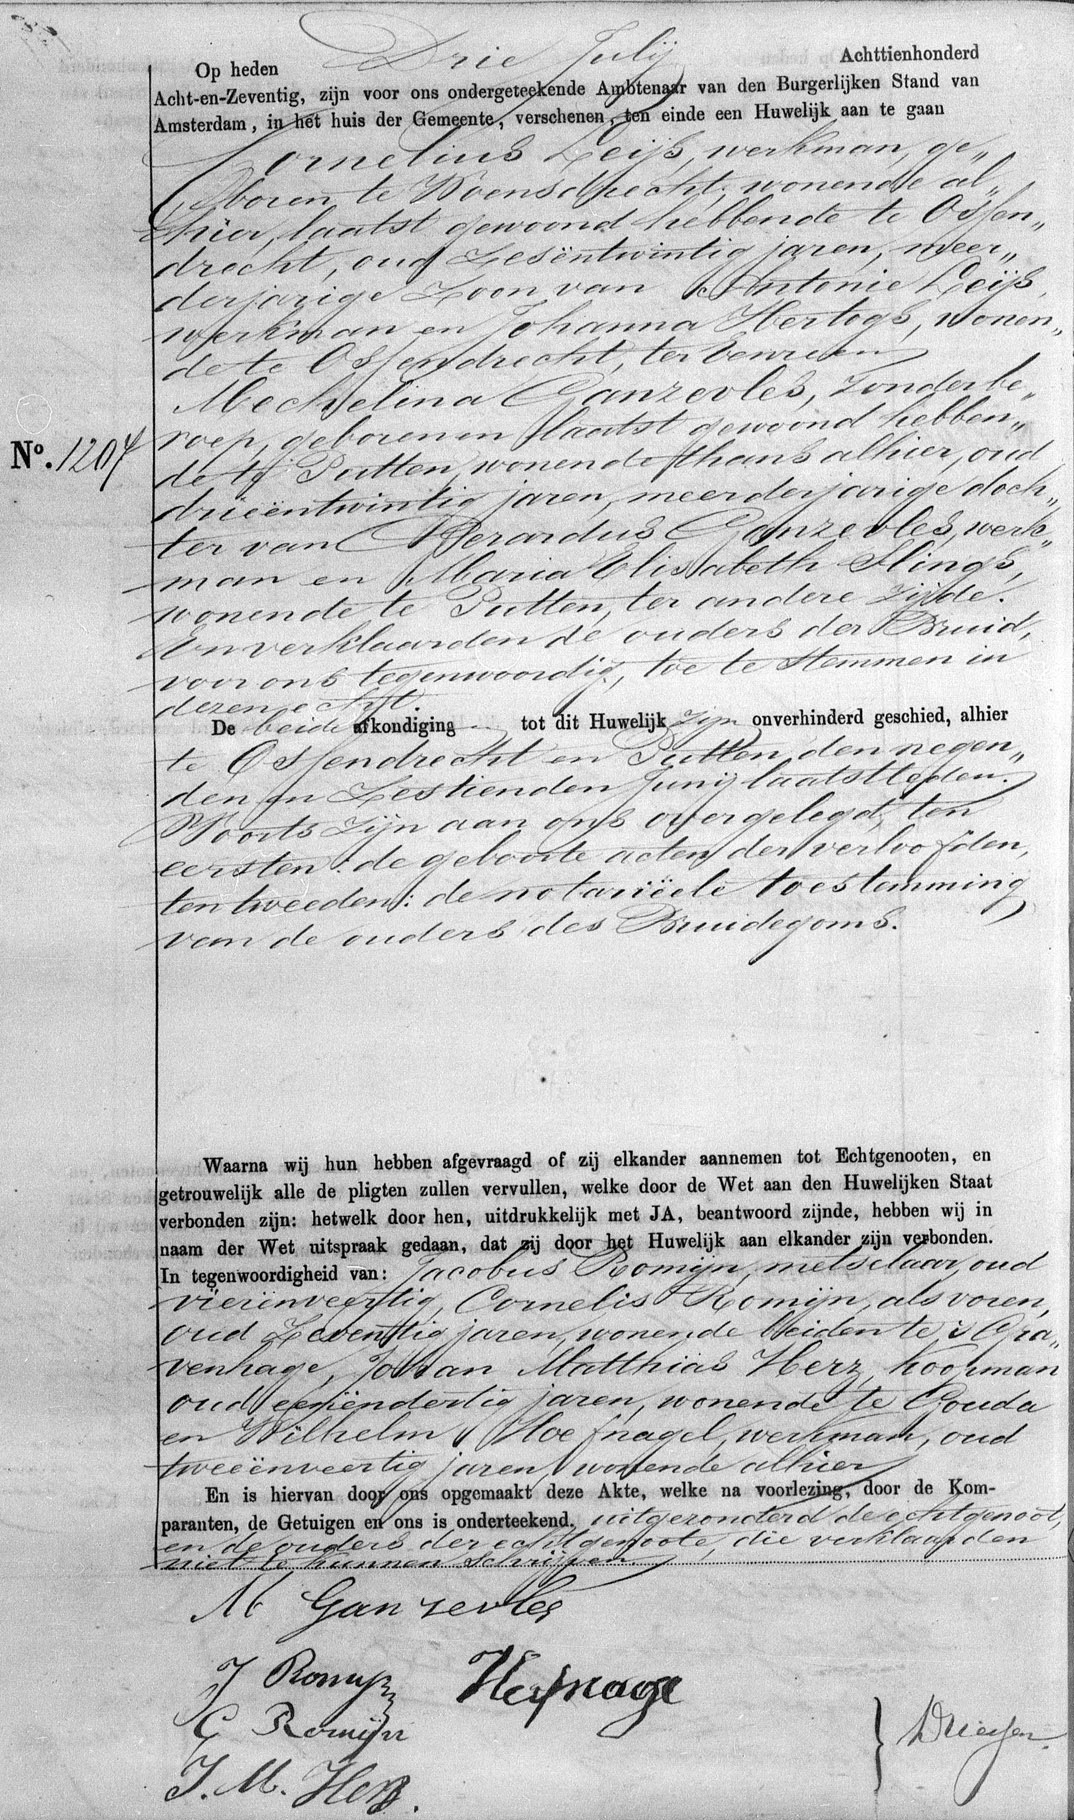 Op heden Drie Julij Achttienhonderd
Acht-en-Zeventig, zijn voor ons ondergeteekende Ambtenaar van den Burgerlijken Stand van
Amsterdam, in het huis der Gemeente, verschenen, ten einde een Huwelijk aan te gaan
Cornelius Leijs, werkman, ge„
boren te Woensdrecht, wonende al„
hier, laatst gewoond hebbende te Ossen„
drecht, oud Zesentwintig jaren, meer„
derjarige Zoon van Antonie Leijs,
werkman en Johanna Hertogs, wonen„
de te Ossendrecht, ter eenre en
Mechelina Ganzevles, zonder be„
roep, geboren en laatst gewoond hebben„
No. 1204
de te Putten, wonende thans alhier, oud
drieëntwintig jaren, meerderjarige doch„
ter van Gerardus Ganzevles, werk„
man en Maria Elisabeth Slings,
wonende te Putten, ter andere zijde.
En verklaarden de ouders der Bruid,
voor ons tegenwoordig, toe te stemmen in
dezen echt.
De beide afkondiging tot dit Huwelijk zijn onverhinderd geschied, alhier
te Ossendrecht en Putten den negen„
den en Zestienden Junij laatstleden.
Voorts zijn aan ons overgelegd, ten
eersten: de geboorte acten der verloofden,
ten tweeden: de notariëele toestemming
van de ouders des Bruidegoms.
Waarna wij hun hebben afgevraagd of zij elkander aannemen tot Echtgenooten, en
getrouwelijk alle de pligten zullen vervullen, welke door de Wet aan den Huwelijken Staat
verbonden zijn: hetwelk door hen, uitdrukkelijk met JA, beantwoord zijnde, hebben wij in
naam der Wet uitspraak gedaan, dat zij door het Huwelijk aan elkander zijn verbonden.
In tegenwoordigheid van: Jacobus Romijn, metselaar, oud
vierenveertig, Cornelis Romijn, als voren,
oud Zeventig jaren, wonende beiden te 's Gra„
venhage, Johan Matthias Herz, koopman
oud eenëndertig jaren, wonende te Gouda
en Wilhelm Hoefnagel, werkman, oud
tweeënveertig jaren, wonende alhier
En is hiervan door ons opgemaakt deze Akte, welke na voorlezing, door de Kom-
paranten, de Getuigen en ons is onderteekend. uitgezonderd de echtgenoot,
en de ouders der echtgenoote, die verklaarden
niet te kunnen schrijven
M Ganzevles
J Romijn
C Romijn
J. M. Herz.